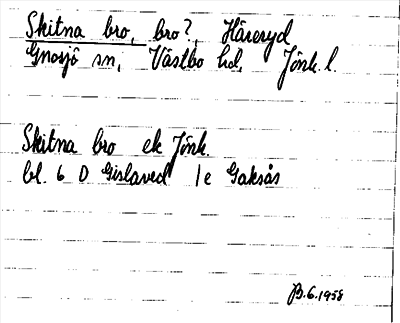 Skitna bro, bro?, Håreryd
Gnosjö sn, Västbo hd, Jönk. l.
Skitna bro ek Jönk.
bl. 6 D Gislaved 1e Gaksås
B.G. 1958